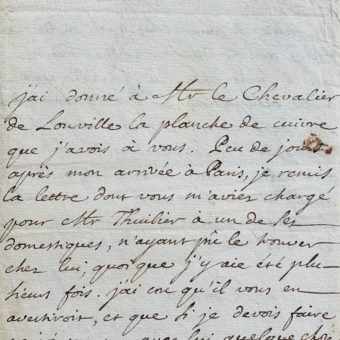 j'ai donné à Mr le Chevalier
de Louville la planche de cuivre
que j'avois à vous. Peu de jours
après mon arrivée à Paris, je remis
la lettre dont vous m'aviez chargé
pour Mr Thuilier à un de ses
domestiques, n'ayant pû le trouver
chez lui, quoique j'y aie été plu-
sieurs fois. j'ai cru qu'il vous en
avertiroit, et que si je devois faire
avec lui quelque chose